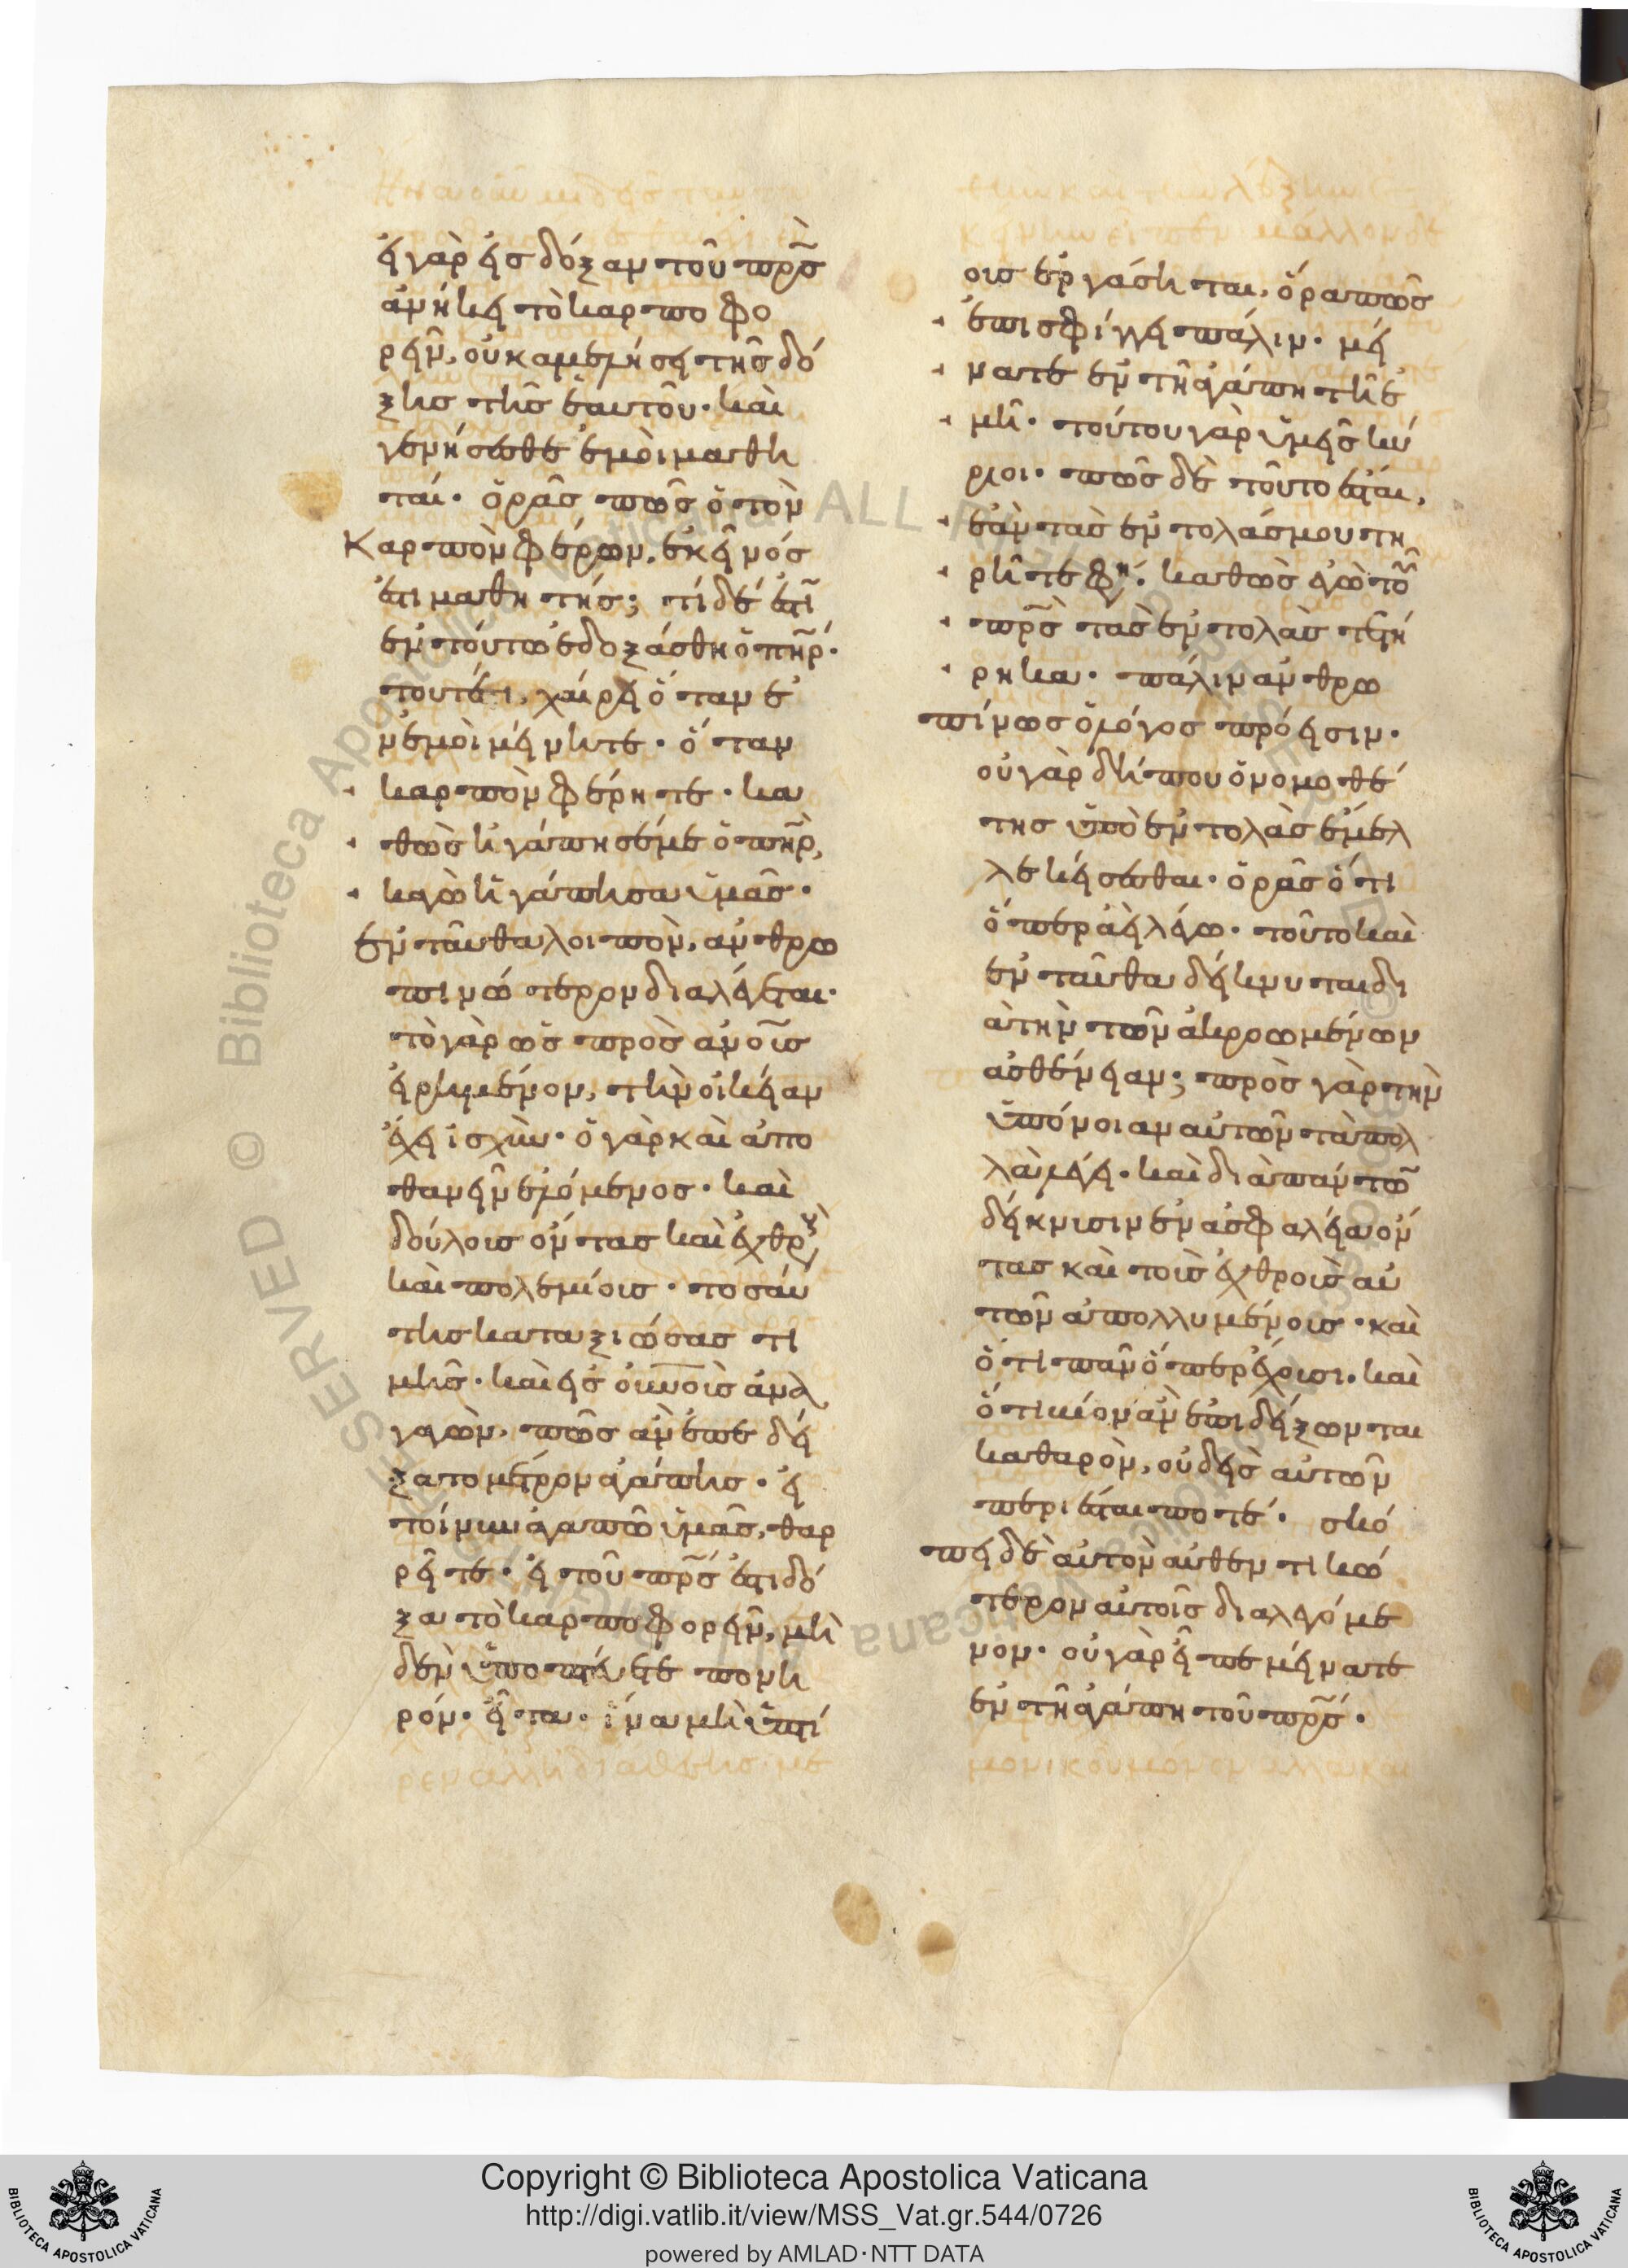 εἰ γὰρ εἰς δόξαν τοῦ πρ̅ς
ἀνήκει τὸ καρπο φο
ρεῖν, οὐκ ἀμελήσει τῆς δό
ξης τῆς ἑαυτοῦ· καὶ
γενήσεσθε ἐμοὶ μαθη
ταί· ὁρᾶς πῶς ὁ τὸν
καρπὸν φέρων, ἐκεῖνός
ἐστι μαθητής; τί δέ ἐστὶ
ἐν τούτω ἐδοξάσθη ὁ πη̅ρ·
τουτέστι, χαίρει ὅταν ἐ
ν ἐμοὶ μείνητε· ὅταν
καρπὸν φέρητε· κα
θὼς ἠγάπησέ με ὁ πη̅ρ,
καγὼ ἠγάπησα ὑμᾶς·
ἐνταῦθα λοιπὸν, ἀνθρω
πινώτερον διαλέγεται·
τὸ γὰρ ὡς πρὸς ἀν̅οις
εἰρημένον, τὴν οἰκείαν
ἔχει ἰσχὺν· ὁ γὰρ καὶ ἀπο
θανεῖν ἑλόμενος· καὶ
δούλους ὄντας καὶ ἐχθρ
καὶ πολεμίους· τοσαύ
της καταξιώσας τι
μῆς· καὶ εἰς οὐ̅νοὺς ἀνα
γαγὼν, πῶς ἂν ἐπεδεί
ξατο μέτρον ἀγάπης· εἰ
τοίνυν ἀγαπῶ ὑμᾶς, θαρ
ρεῖτε· εἰ τοῦ πρ̅ς ἐστι δό
ξα τὸ καρποφορεῖν, μὴ
δὲν ὑποπτεύετε πονη
ρόν· εἶτα· ἵνα μὴ ὑπτί
ους ἐργάσηται, ὅρα πῶς
ἐπισφίγγει πάλιν· μεί
νατε ἐν τῆ ἀγάπη τῆ ἐ
μῆ· τούτου γὰρ ὑμεῖς κύ
ριοι· πῶς δὲ τοῦτο ἔσται,
ἐὰν τὰς ἐντολάς μου τη
ρῆτε φη· καθὼς ἐγὼ τοῦ
πρ̅ς τὰς ἐντολὰς τετή
ρηκα· πάλιν ἀνθρω
πίνως ὁ λόγος πρόεισιν·
οὐ γὰρ δήπου ὁ νομοθέ
της ὑπὸ ἐντολὰς ἔμελ
λε κεῖσθαι· ὁρᾶς ὅτι
ὅπερ ἀεὶ λέγω· τοῦτο καὶ
ἐνταῦθα δείκνυται δι
ὰ τὴν τῶν ἀκροωμένων
ἀσθένειαν; πρὸς γὰρ τὴν
ὑπόνοιαν αὐτῶν τὰ πολ
λὰ λέγει· καὶ διὰ πάντων
δείκνυσιν ἐν ἀσφαλεία ὄν
τας καὶ τοὺς ἐχθροὺς αὐ
τῶν ἀπολλυμένους· καὶ
ὅτι πᾶν ὅπερ ἔχουσι. καὶ
ὅτι κἂν βίον ἐπιδείξωνται
καθαρὸν, οὐδεὶς αὐτῶν
περιέσται ποτέ· σκό
πει δὲ αὐτὸν αὐθεντικώ
τερον αὐτοῖς διαλεγόμε
νον· οὐ γὰρ εἶπε μείνατε
ἐν τῆ ἀγάπη τοῦ πρ̅ς·
Copyright © Biblioteca Apostolica Vaticana
http://digi.vatlib.it/view/MSS_Vat.gr.544/0726
powered by AMLAD·NTT DATA